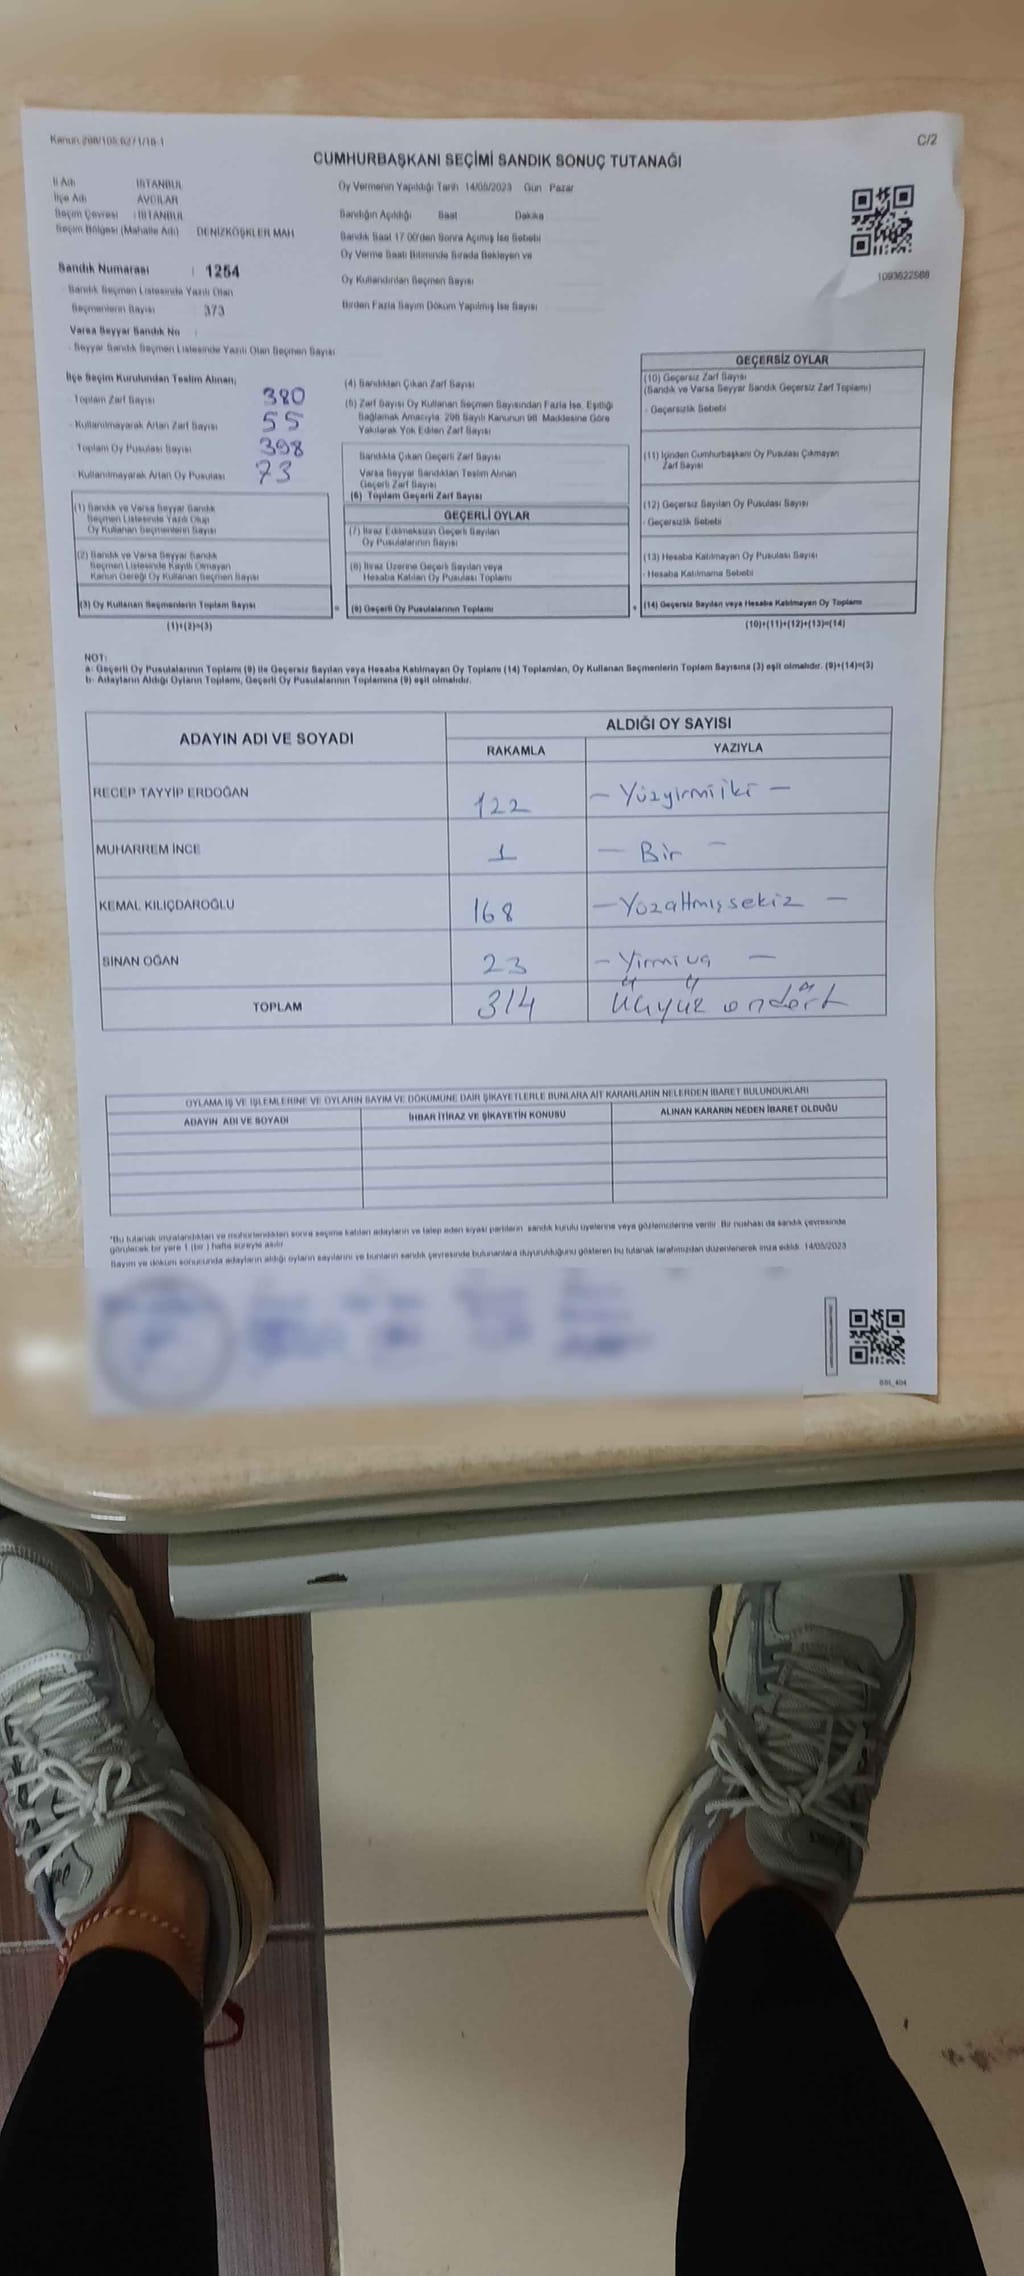 Kanun 298/105,6271/18-1
C/2
CUMHURBAŞKANI SEÇİMİ SANDIK SONUÇ TUTANAĞI
İl Adı İSTANBUL
İlçe Adı AVCILAR
Seçim Çevresi : İSTANBUL
Seçim Bölgesi (Mahalle Adı) DENİZKÖŞKLER MAH
Sandık Numarası : 1254
- Sandık Seçmen Listesinde Yazılı Olan
Seçmenlerin Sayısı 373
Varsa Seyyar Sandık No :
- Seyyar Sandık Seçmen Listesinde Yazılı Olan Seçmen Sayısı
Oy Vermenin Yapıldığı Tarih 14/05/2023 Gün : Pazar
Sandığın Açıldığı Saat Dakika
Sandık Saat 17.00'den Sonra Açımış İse Sebebi
Oy Verme Saati Bitiminde Sırada Bekleyen ve
Oy Kullandırılan Seçmen Sayısı
Birden Fazla Sayım Döküm Yapılmış İse Sayısı
1093622588
İlçe Seçim Kurulundan Teslim Alınan;
- Toplam Zarf Sayısı 380
- Kullanılmayarak Artan Zarf Sayısı 55
- Toplam Oy Pusulası Sayısı 398
Kullanılmayarak Artan Oy Pusulası 73
(1) Sandık ve Varsa Seyyar Sandık
Seçmen Listesinde Yazılı Olup
Oy Kullanan Seçmenlerin Sayısı
(2) Sandık ve Varsa Seyyar Sandık
Seçmen Listesinde Kayıtlı Olmayan
Kanun Gereği Oy Kullanan Seçmen Sayısı
(3) Oy Kullanan Seçmenlerin Toplam Sayısı
(1)+(2)=(3)
(4) Sandıktan Çıkan Zarf Sayısı
(5) Zarf Sayısı Oy Kullanan Seçmen Sayısından Fazla İse, Eşitliği
Sağlamak Amacıyla, 298 Sayılı Kanunun 98. Maddesine Göre
Yakılarak Yok Edilen Zarf Sayısı
Sandıkta Çıkan Geçerli Zarf Sayısı
Varsa Seyyar Sandıktan Teslim Alınan
Geçerli Zarf Sayısı
(6) Toplam Geçerli Zarf Sayısı
GEÇERLİ OYLAR
(7) İtiraz Edilmeksizin Geçerli Sayılan
Oy Pusulalarının Sayısı
(8) İtiraz Üzerine Geçerli Sayılan veya
Hesaba Katılan Oy Pusulası Toplamı
= (9) Geçerli Oy Pusulalarının Toplamı
GEÇERSİZ OYLAR
(10) Geçersiz Zarf Sayısı
(Sandık ve Varsa Seyyar Sandık Geçersiz Zarf Toplamı)
- Geçersizlik Sebebi
(11) İçinden Cumhurbaşkanı Oy Pusulası Çıkmayan
Zarf Sayısı
(12) Geçersiz Sayılan Oy Pusulası Sayısı
- Geçersizlik Sebebi
(13) Hesaba Katılmayan Oy Pusulası Sayısı
- Hesaba Katılmama Sebebi
+ (14) Geçersiz Sayılan veya Hesaba Katılmayan Oy Toplamı
(10)+(11)+(12)+(13)=(14)
NOT:
a- Geçerli Oy Pusulalarının Toplamı (9) ile Geçersiz Sayılan veya Hesaba Katılmayan Oy Toplamı (14) Toplamları, Oy Kullanan Seçmenlerin Toplam Sayısına (3) eşit olmalıdır. (9)+(14)=(3)
b- Adayların Aldığı Oyların Toplamı, Geçerli Oy Pusulalarının Toplamına (9) eşit olmalıdır.
ADAYIN ADI VE SOYADI
ALDIĞI OY SAYISI
RAKAMLA YAZIYLA
RECEP TAYYİP ERDOĞAN 122 – Yüzyirmiiki –
MUHARREM İNCE 1 – Bir –
KEMAL KILIÇDAROĞLU 168 – Yüzaltmışsekiz –
SİNAN OĞAN 23 – Yirmi üç –
TOPLAM 314 Üçyüz ondört
OYLAMA İŞ VE İŞLEMLERİNE VE OYLARIN SAYIM VE DÖKÜMÜNE DAİR ŞİKAYETLERLE BUNLARA AİT KARARLARIN NELERDEN İBARET BULUNDUKLARI
ADAYIN ADI VE SOYADI İHBAR İTİRAZ VE ŞİKAYETİN KONUSU ALINAN KARARIN NEDEN İBARET OLDUĞU
*Bu tutanak imzalandıktan ve mühürlendikten sonra seçime katılan adayların ve talep eden siyasi partilerin sandık kurulu üyelerine veya gözlemcilerine verilir. Bir nushası da sandık çevresinde
görülecek bir yere 1 (bir ) hafta süreyle asılır
Sayım ve döküm sonucunda adayların aldığı oyların sayılarını ve bunların sandık çevresinde bulunanlara duyurulduğunu gösteren bu tutanak tarafımızdan düzenlenerek imza edildi. 14/05/2023